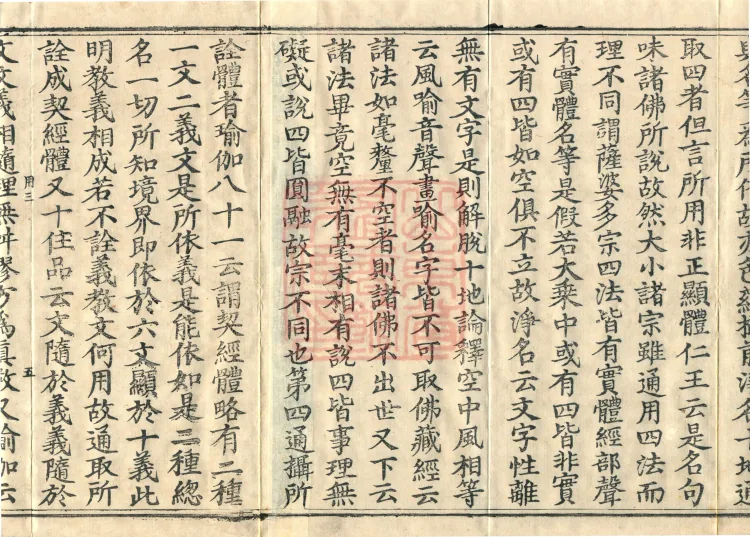 取四者但言所用非正顯體仁王云是名句
味諸佛所說故然大小諸宗雖通用四法而
理不同謂薩婆多宗四法皆有實體經部聲
有實體名等是假若大乘中或有四皆非實
或有四皆如空俱不立故淨名云文字性離
無有文字是則解脫十地論釋空中風相等
云風喻音聲畫喻名字皆不可取佛藏經云
諸法如毫釐不空者則諸佛不出世又下云
諸法畢竟空無有毫末相有說四皆事理無
礙或說四皆圓融故宗不同也第四通攝所
詮體者瑜伽八十一云謂契經體略有二種
一文二義文是所依義是能依如是二種總
名一切所知境界即依於六文顯於十義此
明教義相成若不詮義教文何用故通取所
詮成契經體又十住品云文隨於義義隨於
用三 五
文文義相隨理無舛謬方為真教又瑜伽云